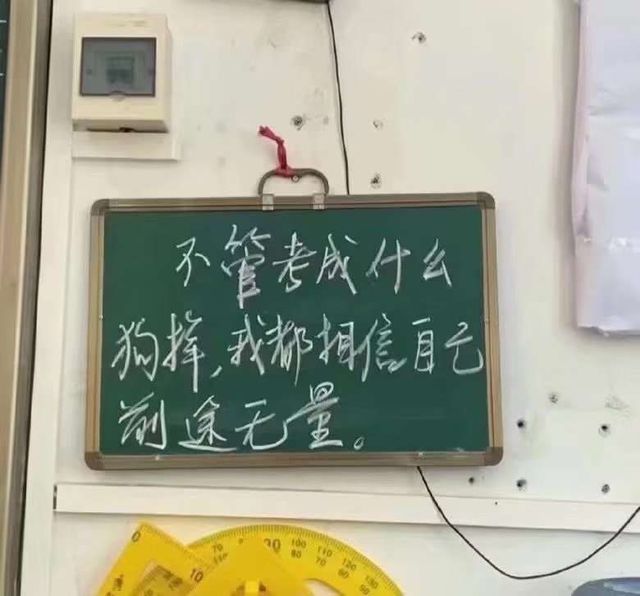 不管考成什么
狗样,我都相信自己
前途无量。
0
10
70
80
90
100
110
120
130
80
70
60
50